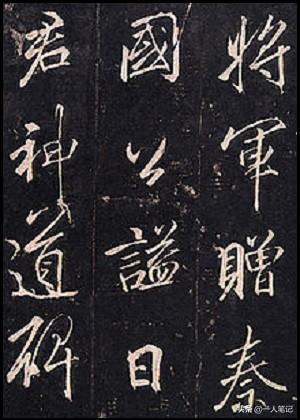 將軍贈秦
國公謚曰
君神道碑
头条 @一人笔记